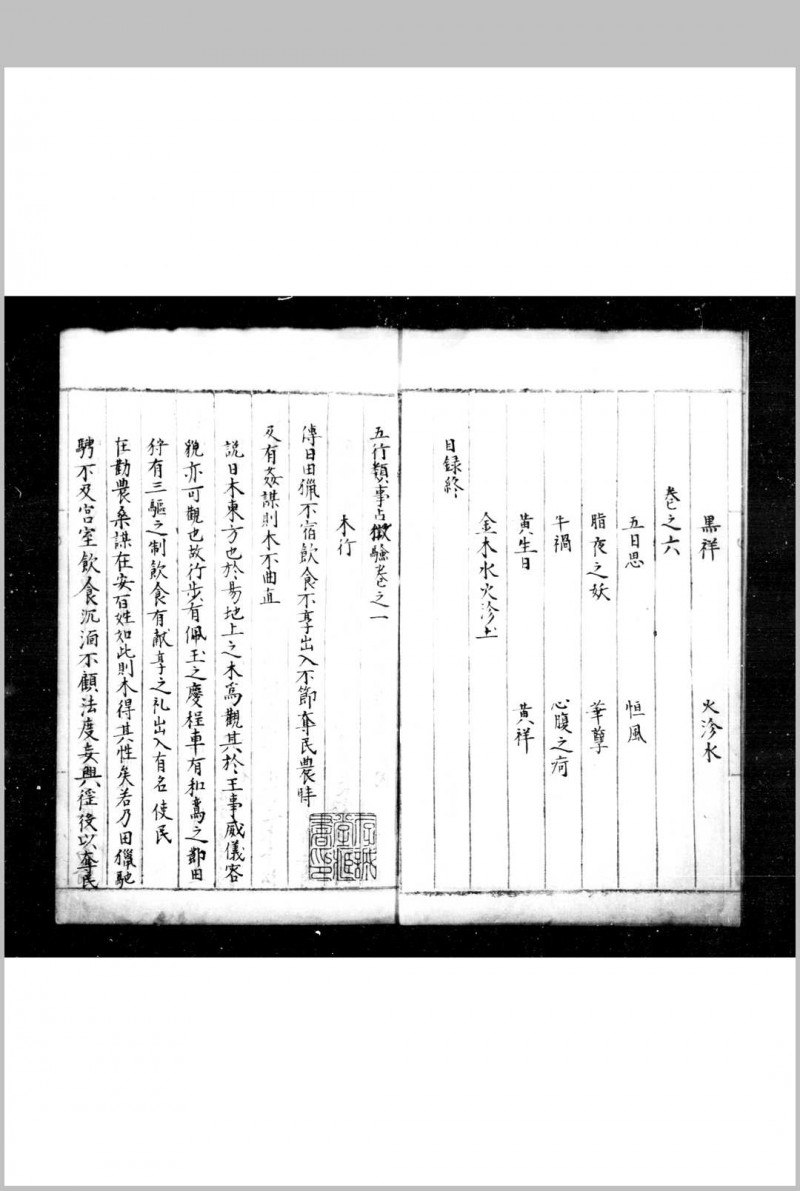 黑祥　火沴水
卷之六
五曰思　恒風
脂夜之妖　華孽
牛禍　心腹之疴
黃生日　黃祥
金木水火沴土
目録終
五行類事占徵驗卷之一
木行
傳曰田獵不宿飲食不享出入不節奪民農時
及有姦謀則木不曲直
說曰木東方也於易地上之木為觀其於王事威儀容
貌亦可觀也故行步有佩玉之度程車有和鸞之節田
狩有三驅之制飲食有献享之礼出入有名使民
在勸農桑謀在安百姓如此則木得其性矣若乃田獵馳
騁不及宮室飲食沉湎不顧法度妄興徭役以奪民